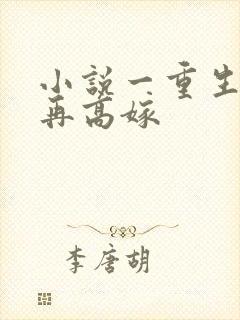 小说一重生
再高嫁
李唐胡